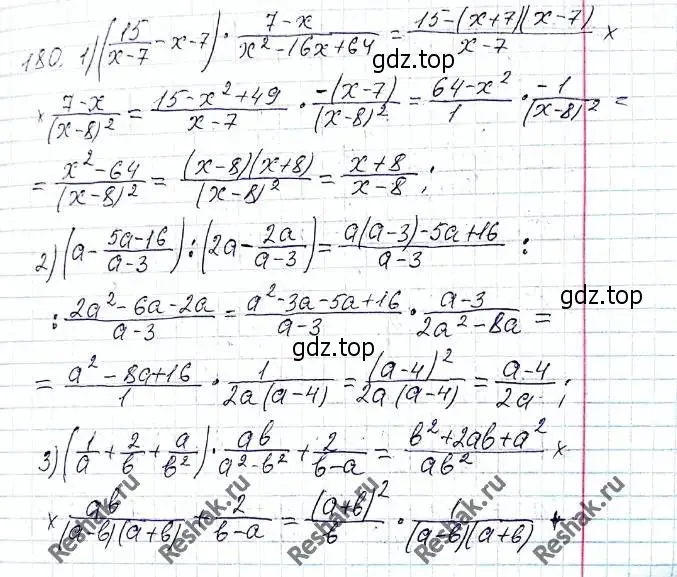 180. 1) (15/(x-7) - x - 7) · (7-x)/(x²-16x+64) = (15-(x+7)(x-7))/(x-7) ×
× (7-x)/(x-8)² = (15-x²+49)/(x-7) · (-(x-7))/(x-8)² = (64-x²)/1 · (-1)/(x-8)² =
= (x²-64)/(x-8)² = ((x-8)(x+8))/(x-8)² = (x+8)/(x-8);
2) (a - (5a-16)/(a-3)) : (2a - 2a/(a-3)) = (a(a-3)-5a+16)/(a-3) :
: (2a²-6a-2a)/(a-3) = (a²-3a-5a+16)/(a-3) · (a-3)/(2a²-8a) =
= (a²-8a+16)/1 · 1/(2a(a-4)) = (a-4)²/(2a(a-4)) = (a-4)/(2a);
3) (1/a + 2/b + a/b²) · ab/(a²-b²) + 2/(b-a) = (b²+2ab+a²)/(ab²) ×
× ab/((a-b)(a+b)) + 2/(b-a) = (a+b)²/b · 1/((a-b)(a+b)) +
gdz.top
gdz.top
gdz.top
gdz.top
gdz.top
Reshak.ru
Reshak.ru
Reshak.ru
Reshak.ru